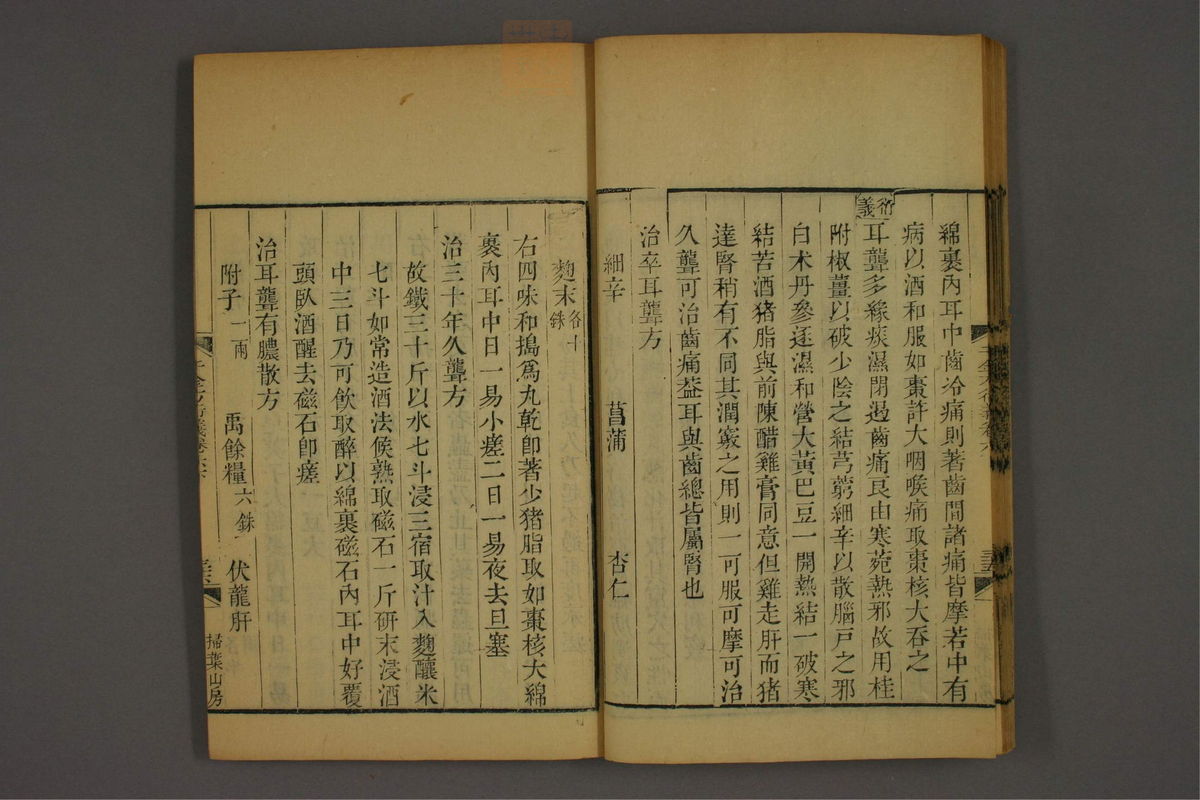 綿裹內耳中齒冷痛則著齒間諸痛皆摩若中有
病以酒和服如棗許大咽喉痛取棗核大吞之
衍義
耳聾多緣痰濕閉遏齒痛良由寒菀熱邪故用桂
附椒薑以破少陰之結芎藭細辛以散腦戸之邪
白术丹參逐濕和營大黃巴豆一開熱結一破寒
結苦酒猪脂與前陳醋雞膏同意但雞走肝而猪
達腎稍有不同其潤竅之用則一可服可摩可治
久聾可治齒痛益耳與齒總皆屬腎也
治卒耳聾方
細辛 菖蒲 杏仁
麴末各十銖
右四味和搗爲丸乾卽著少猪脂取如棗核大綿
裹內耳中日一易小瘥二日一易夜去旦塞
治三十年久聾方
故鐵三十斤以水七斗浸三宿取汁入麴釀米
七斗如常造酒法候熟取磁石一斤研末浸酒
中三日乃可飲取醉以綿裹磁石內耳中好覆
頭臥酒醒去磁石卽瘥
治耳聾有膿散方
附子一兩 禹餘糧六銖 伏龍肝
掃葉山房